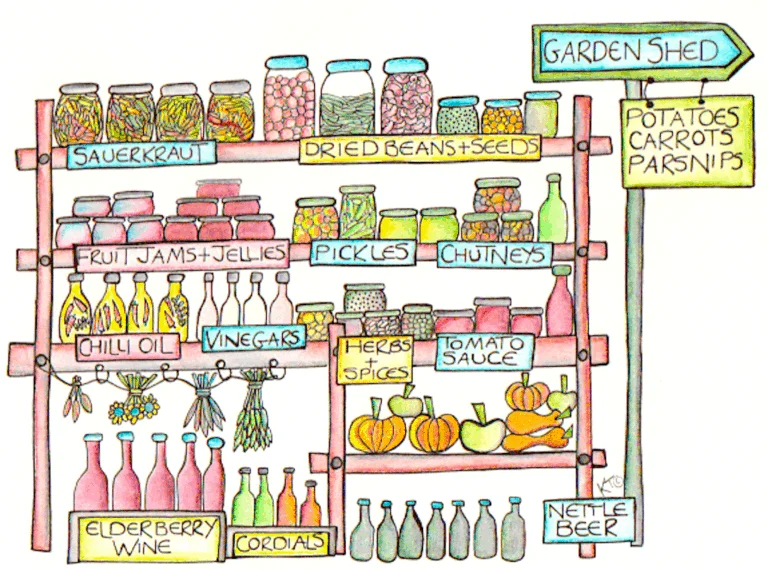 GARDEN SHED
POTATOES
CARROTS
PARSNIPS
SAUERKRAUT
DRIED BEANS+SEEDS
FRUIT JAMS+JELLIES
PICKLES
CHUTNEYS
CHILLI OIL
VINEGARS
HERBS
+
SPICES
TOMATO
SAUCE
ELDERBERRY
WINE
CORDIALS
NETTLE
BEER